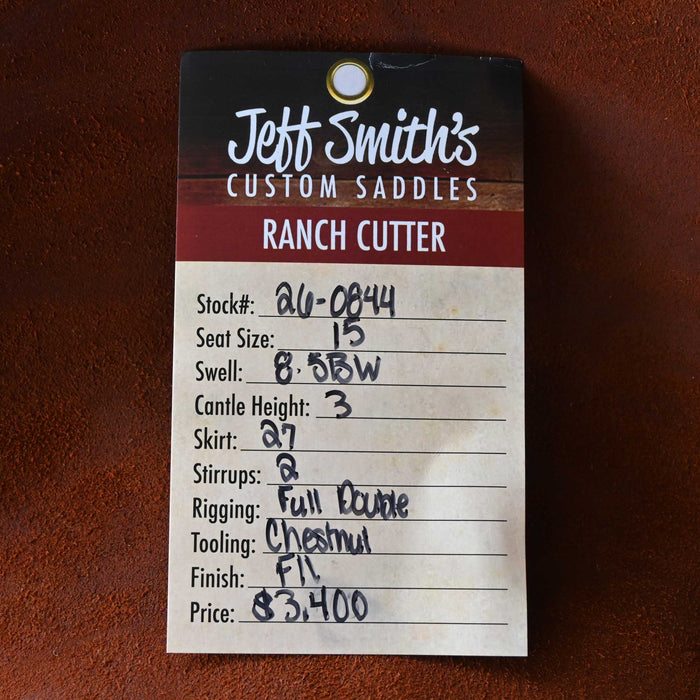 Jeff Smith's
CUSTOM SADDLES
RANCH CUTTER
Stock#: 26-0844
Seat Size: 15
Swell: 8.5BW
Cantle Height: 3
Skirt: 27
Stirrups: 2
Rigging: Full Double
Tooling: Chestnut
Finish:
Price: $3,400